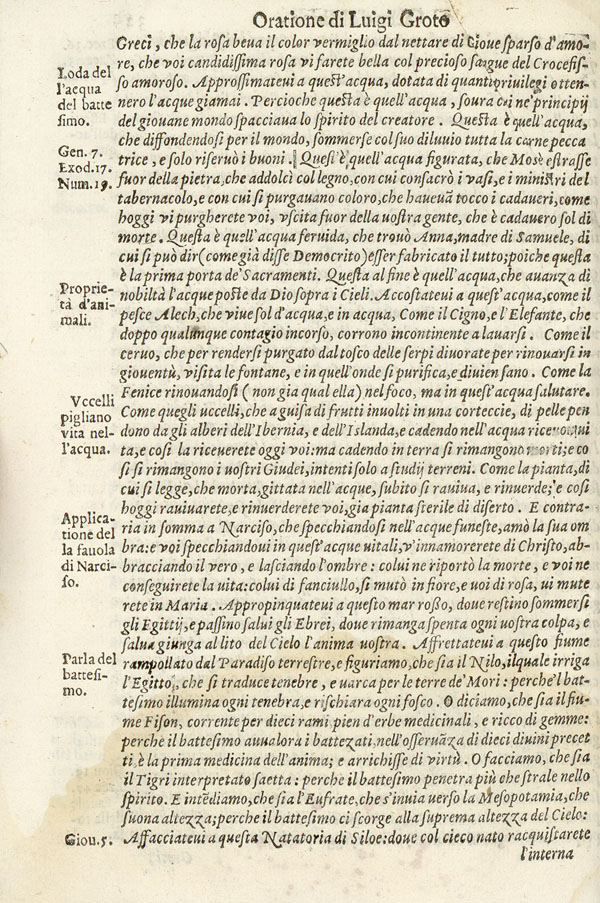 Oratione di Luigi Groto
Greci, che la rosa beua il color vermiglio dal nettare di Gioue sparso d'amo-
re, che voi candidissima rosa vi farete bella col precioso sangue del Crocefis-
so amoroso. Approssimateui a quest'acqua, dotata di quanti priuilegi otten-
nero l'acque giamai. Percioche questa è quell'acqua, soura cui ne' principij
del giouane mondo spacciaua lo spirito del creatore. Questa è quell'acqua,
che diffondendosi per il mondo, sommerse col suo diluuio tutta la carne pecca
trice, e solo riseruò i buoni. Quest'è quell'acqua figurata, che Mosè estrasse
fuor della pietra, che addolcì col legno, con cui consacrò i vasi, e i ministri del
tabernacolo, e con cui si purgauano coloro, che haueuā tocco i cadaueri, come
hoggi vi purgherete voi, vscita fuor della uostra gente, che è cadauero sol di
morte. Questa è quell'acqua feruida, che trouò Anna, madre di Samuele, di
cui si può dir (come già disse Democrito) esser fabricato il tutto; poiche questa
è la prima porta de' Sacramenti. Questa al fine è quell'acqua, che auanza di
nobiltà l'acque poste da Dio sopra i Cieli. Accostateui a quest'acqua, come il
pesce Alech, che viue sol d'acqua, e in acqua, Come il Cigno, e l'Elefante, che
doppo qualunque contagio incorso, corrono incontinente a lauarsi. Come il
ceruo, che per rendersi purgato dal tosco delle serpi diuorate per rinouarsi in
giouentù, visita le fontane, e in quell'onde si purifica, e diuien sano. Come la
Fenice rinouandosi (non gia qual ella) nel foco, ma in quest'acqua salutare.
Come quegli uccelli, che a guisa di frutti inuolti in una corteccie, di pelle pen
dono da gli alberi dell'Ibernia, e dell'Islanda, e cadendo nell'acqua riceuon ui
ta, e così la riceuerete oggi voi: ma cadendo in terra si rimangono morti; e co
sì si rimangono i uostri Giudei, intenti solo a studij terreni. Come la pianta, di
cui si legge, che morta, gittata nell'acque, subito si rauiua, e rinuerde; e così
hoggi rauiuarete, e rinuerderete voi, gia pianta sterile di diserto. E contra-
ria in somma a Narciso, che specchiandosi nell'acque funeste, amò la sua om
bra: e voi specchiandoui in quest'acque uitali, v'innamorerete di Christo, ab-
bracciando il vero, e lasciando l'ombre: colui ne riportò la morte, e voi ne
conseguirete la uita: colui di fanciullo, si mutò in fiore, e uoi di rosa, ui mute
rete in Maria. Appropinquateui a questo mar rosso, doue restino sommersi
gli Egittij, e passino salui gli Ebrei, doue rimanga spenta ogni uostra colpa, e
salua giunga al lito del Cielo l'anima uostra. Affrettateui a questo fiume
rampollato dal Paradiso terrestre, e figuriamo, che sia il Nilo, ilquale irriga
l'Egitto, che si traduce tenebre, e uarca per le terre de' Mori: perche'l bat-
tesimo illumina ogni tenebra, e rischiara ogni fosco. O diciamo, che sia il fiu-
me Fison, corrente per dieci rami pien d'erbe medicinali, e ricco di gemme:
perche il battesimo auualora i battezati, nell'osseruāza di dieci diuini precet
ti, è la prima medicina dell'anima; e arrichisse di virtù. O facciamo, che sia
il Tigri interpretato saetta: perche il battesimo penetra più che strale nello
spirito. E intēdiamo, che sia l'Eufrate, che s'inuia verso la Mesopotamia, che
suona altezza; perche il battesimo ci scorge alla suprema altezza del Cielo:
Affacciateui a questa Natatoria di Siloe: doue col cieco nato racquistarete
l'interna
Loda del
l'acqua
del batte
simo.
Gen. 7.
Exod. 17.
Num. 19.
Proprie-
tà d'ani-
mali.
Vccelli
pigliano
vita nel-
l'acqua.
Applica-
tione del
la fauola
di Narci-
so.
Parla del
battesi-
mo.
Giou. 5.